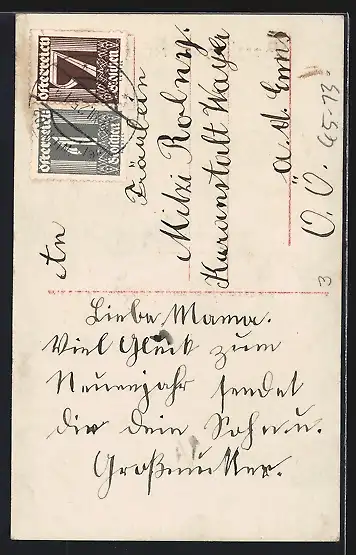 Österreich
7
Groschen
Österreich
Groschen
An
Fräulein
Mitzi Rolny.
Kuranstalt Weyer
a. d. Enns
O. Ö. 65-13.
3
Liebe Mama.
Viel Glück zum
Neuenjahr sendet
dir dein Sohn u.
Großmutter.